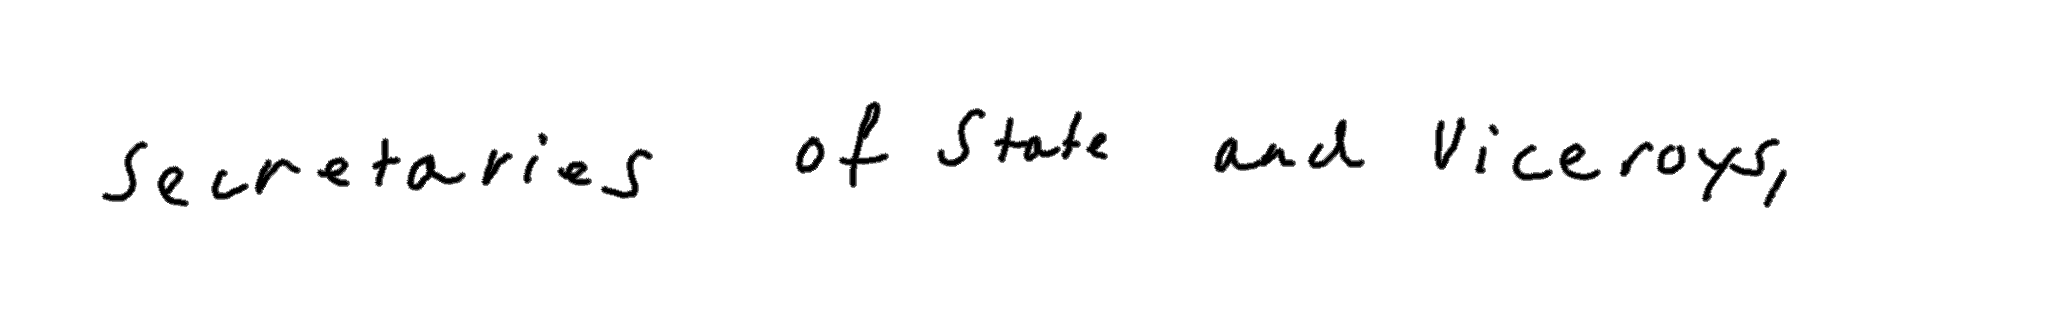 Secretaries of State and Viceroys,